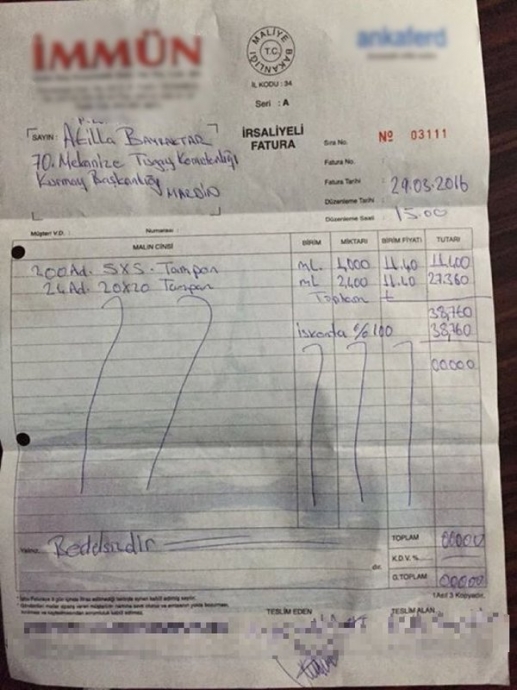 İMMÜN
ankaferd
T.C. MALİYE BAKANLIĞI
İL KODU : 34
Seri : A
İRSALİYELİ
FATURA
Sıra No. Nº 03111
Fatura No. :
Fatura Tarihi : 29.03.2016
Düzenleme Tarihi :
Düzenleme Saati : 15.00
SAYIN : Atilla BAYRAKTAR
70. Mekanize Tugay Komutanlığı
Kurmay Başkanlığı
MARDİN
Müşteri V.D. : Numarası :
MALIN CİNSİ BİRİM MİKTARI BİRİM FİYATI TUTARI
200 Ad. 5X5 . Tampon mL 1,000 11.40 11.400
24 Ad. 20X20 Tampon mL 2,400 11.40 27.360
Toplam 38,760
İskonto %100 38,760
00000
Yalnız Bedelsizdir
TOPLAM 00000
K.D.V. %
G.TOPLAM 00000
dır.
1 Asıl 3 Kopyadır.
TESLİM EDEN TESLİM ALAN